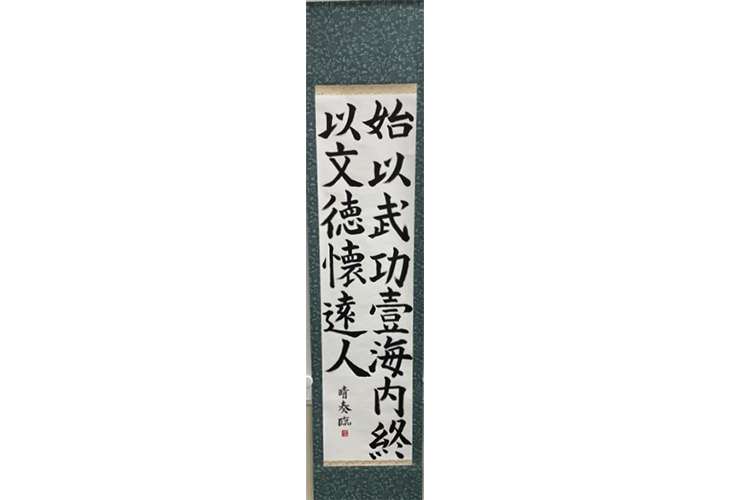 始以武功壹海内終
以文徳懐遠人
晴奏臨